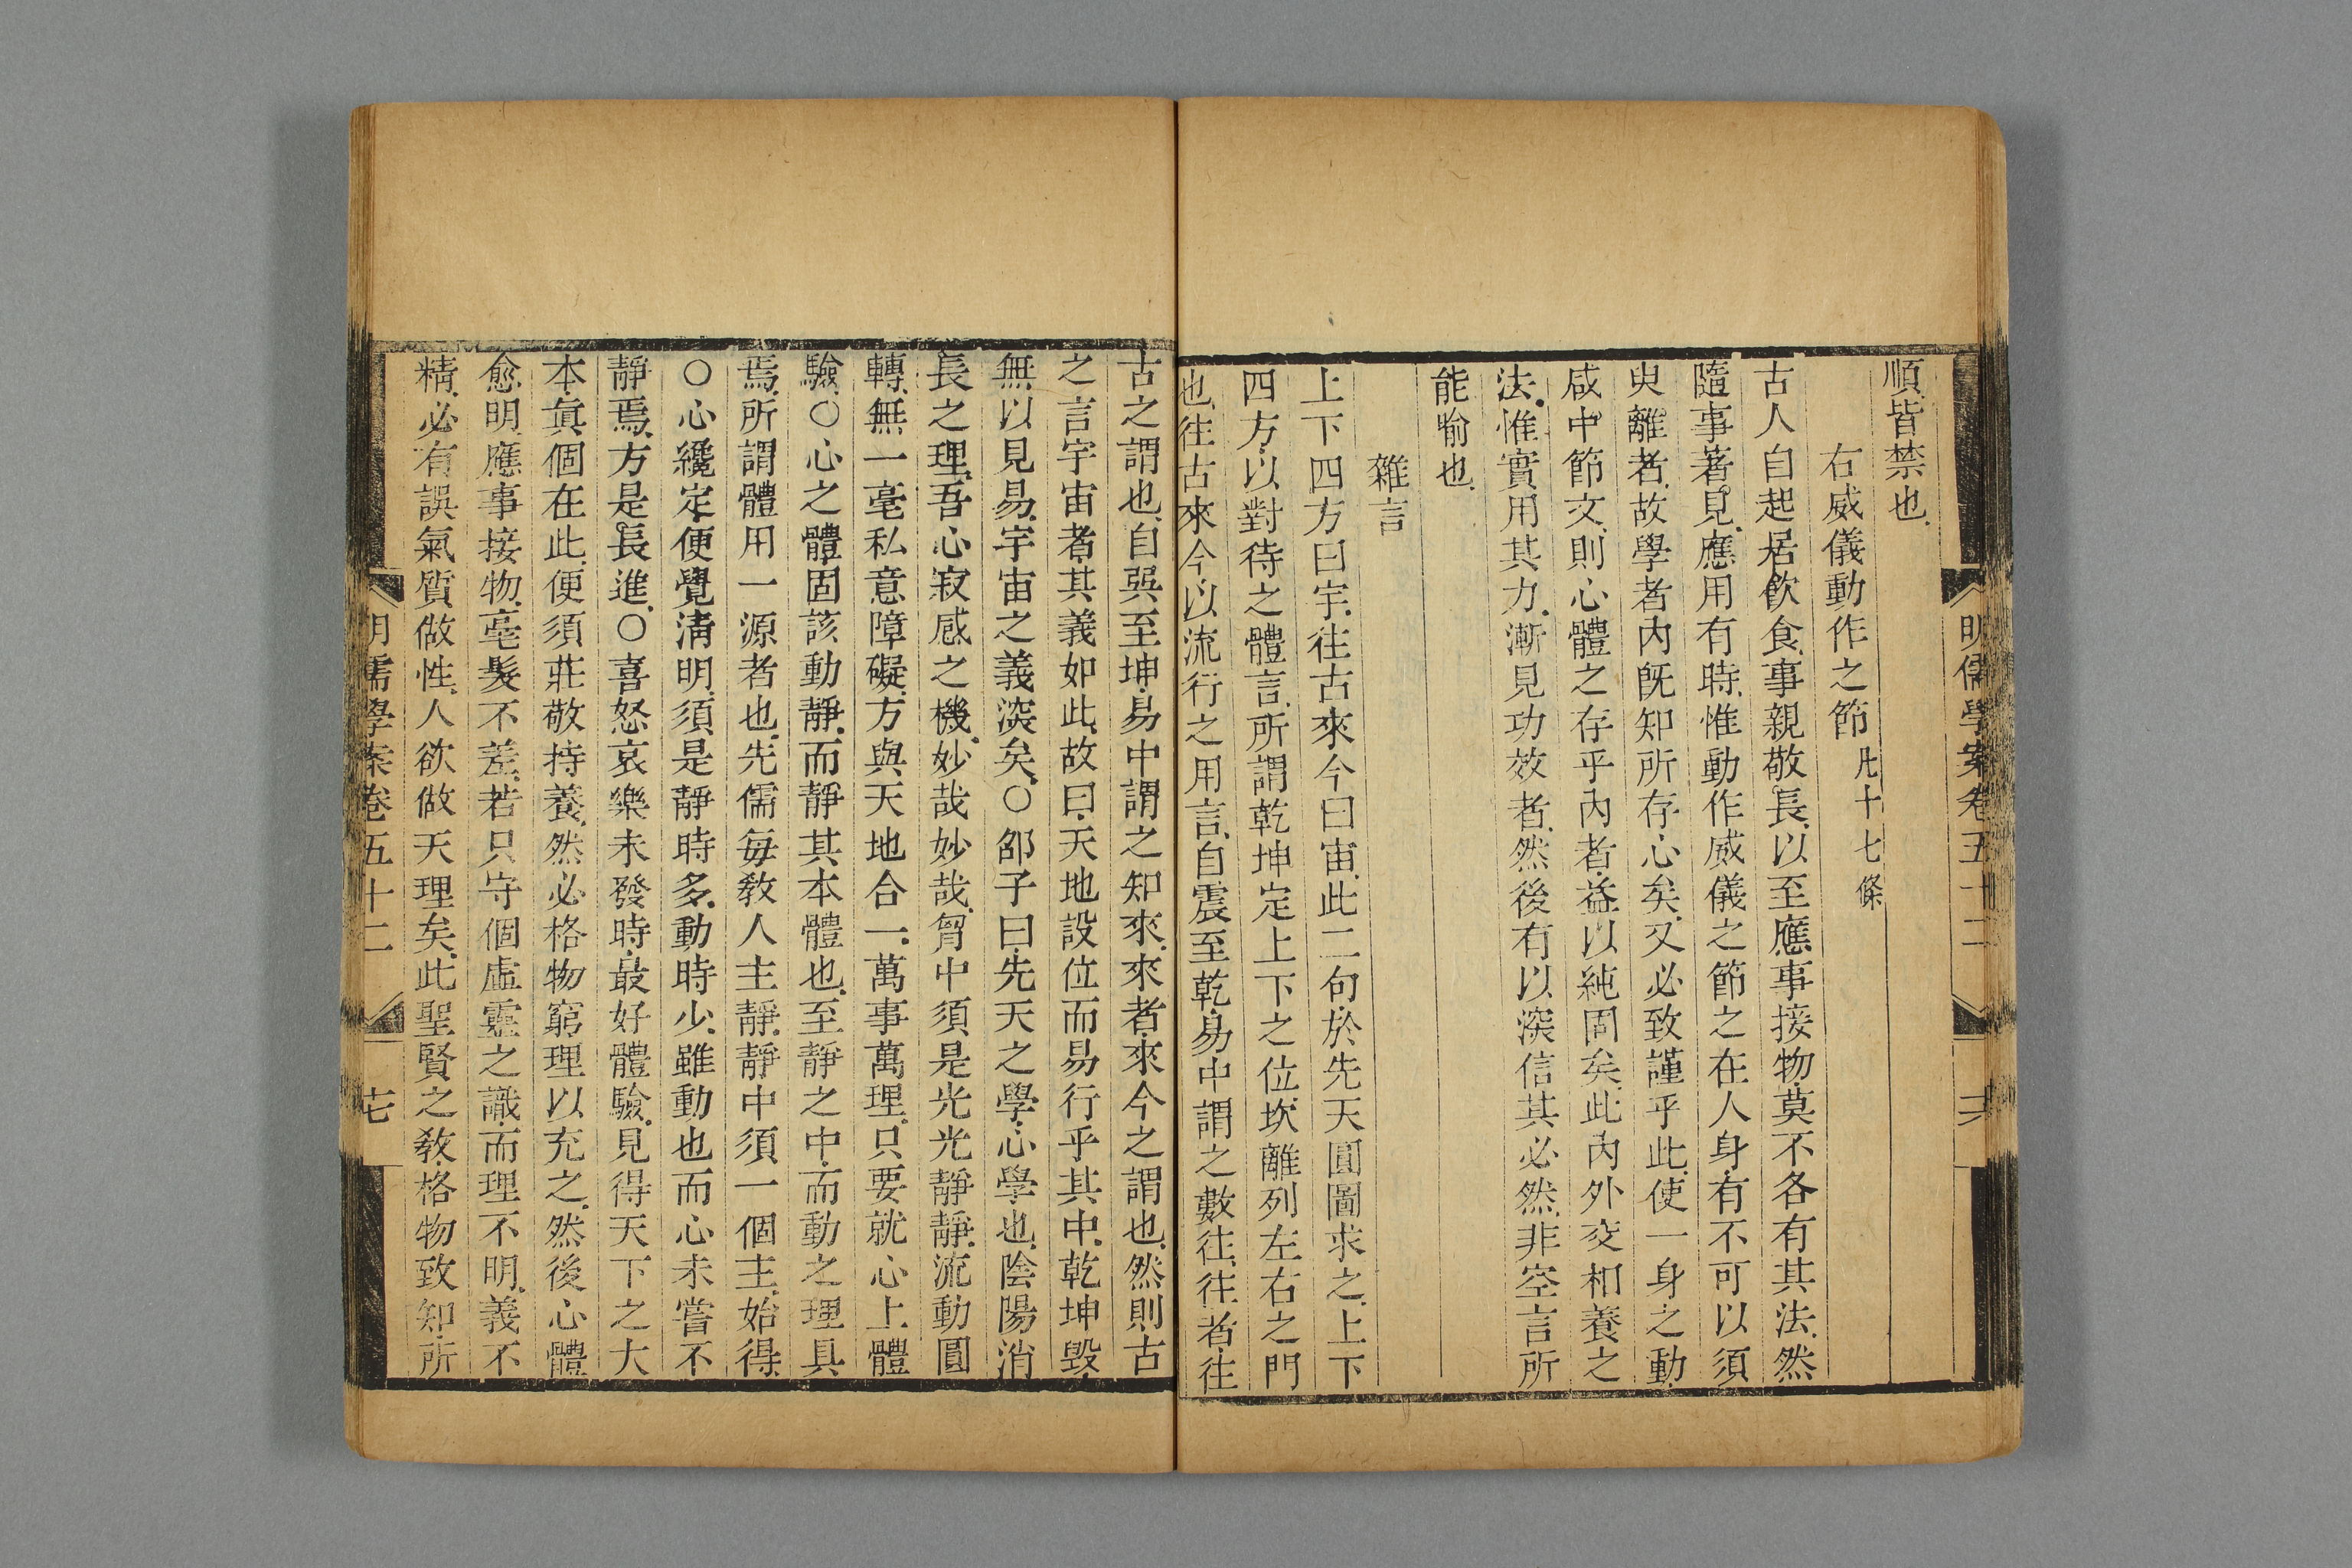 明儒學案卷五十二
順皆禁也
右威儀動作之節凡十七條
古人自起居飲食事親敬長以至應事接物莫不各有其法然
隨事著見應用有時惟動作威儀之節之在人身有不可以須
臾離者故學者內旣知所存心矣又必致謹乎此使一身之動
咸中節文則心體之存乎內者益以純固矣此內外交相養之
法惟實用其力漸見功效者然後有以深信其必然非空言所
能喻也
雜言
上下四方曰宇往古來今曰宙此二句於先天圓圖求之上下
四方以對待之體言所謂乾坤定上下之位坎離列左右之門
也往古來今以流行之用言自震至乾易中謂之數往往者往
古之謂也自巽至坤易中謂之知來來者來今之謂也然則古
之言宇宙者其義如此故曰天地設位而易行乎其中乾坤毀
無以見易宇宙之義深矣○邵子曰先天之學心學也陰陽消
長之理吾心寂感之機妙哉妙哉胷中須是光光靜靜流動圓
轉無一毫私意障礙方與天地合一萬事萬理只要就心上體
驗○心之體固該動靜而靜其本體也至靜之中而動之理具
焉所謂體用一源者也先儒每敎人主靜靜中須一個主始得
○心纔定便覺淸明須是靜時多動時少雖動也而心未嘗不
靜焉方是長進○喜怒哀樂未發時最好體驗見得天下之大
本眞個在此便須莊敬持養然必格物窮理以充之然後心體
愈明應事接物毫髮不差若只守個虛靈之識而理不明義不
精必有誤氣質做性人欲做天理矣此聖賢之敎格物致知所
明儒學案卷五十二 十七